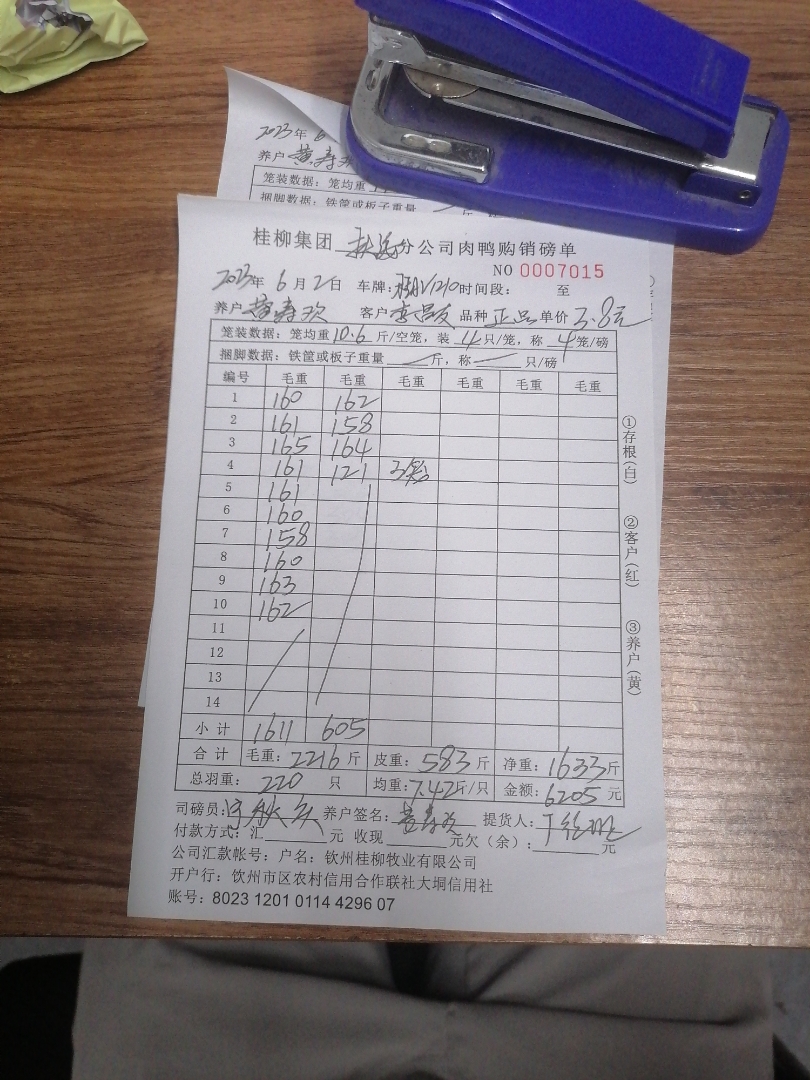 2023年6
养户 黄寿欢
笼装数据：笼均重
捆脚数据：铁筐或板子重量 斤
桂柳集团 分公司肉鸭购销磅单
NO 0007015
2023年 6 月 2 日 车牌： 时间段： 至
养户 黄寿欢 客户 李昌友 品种 正品 单价 3.8元
笼装数据：笼均重 10.6 斤/空笼，装 4 只/笼，称 4 笼/磅
捆脚数据：铁筐或板子重量 — 斤，称 — 只/磅
编号 毛重 毛重 毛重 毛重 毛重 毛重
1 160 162
2 161 158
3 165 164
4 161 121 3笼
5 161
6 160
7 158
8 160
9 163
10 162
11
12
13
14
小计 1611 605
合计 毛重：2216 斤 皮重：583 斤 净重：1633 斤
总羽重：220 只 均重：7.42斤/只 金额：6205 元
司磅员： 养户签名：黄寿欢 提货人：
付款方式：汇 元 收现 元欠（余）： 元
公司汇款帐号：户名：钦州桂柳牧业有限公司
开户行：钦州市区农村信用合作联社大垌信用社
账号：8023 1201 0114 4296 07
①存根（白）
②客户（红）
③养户（黄）